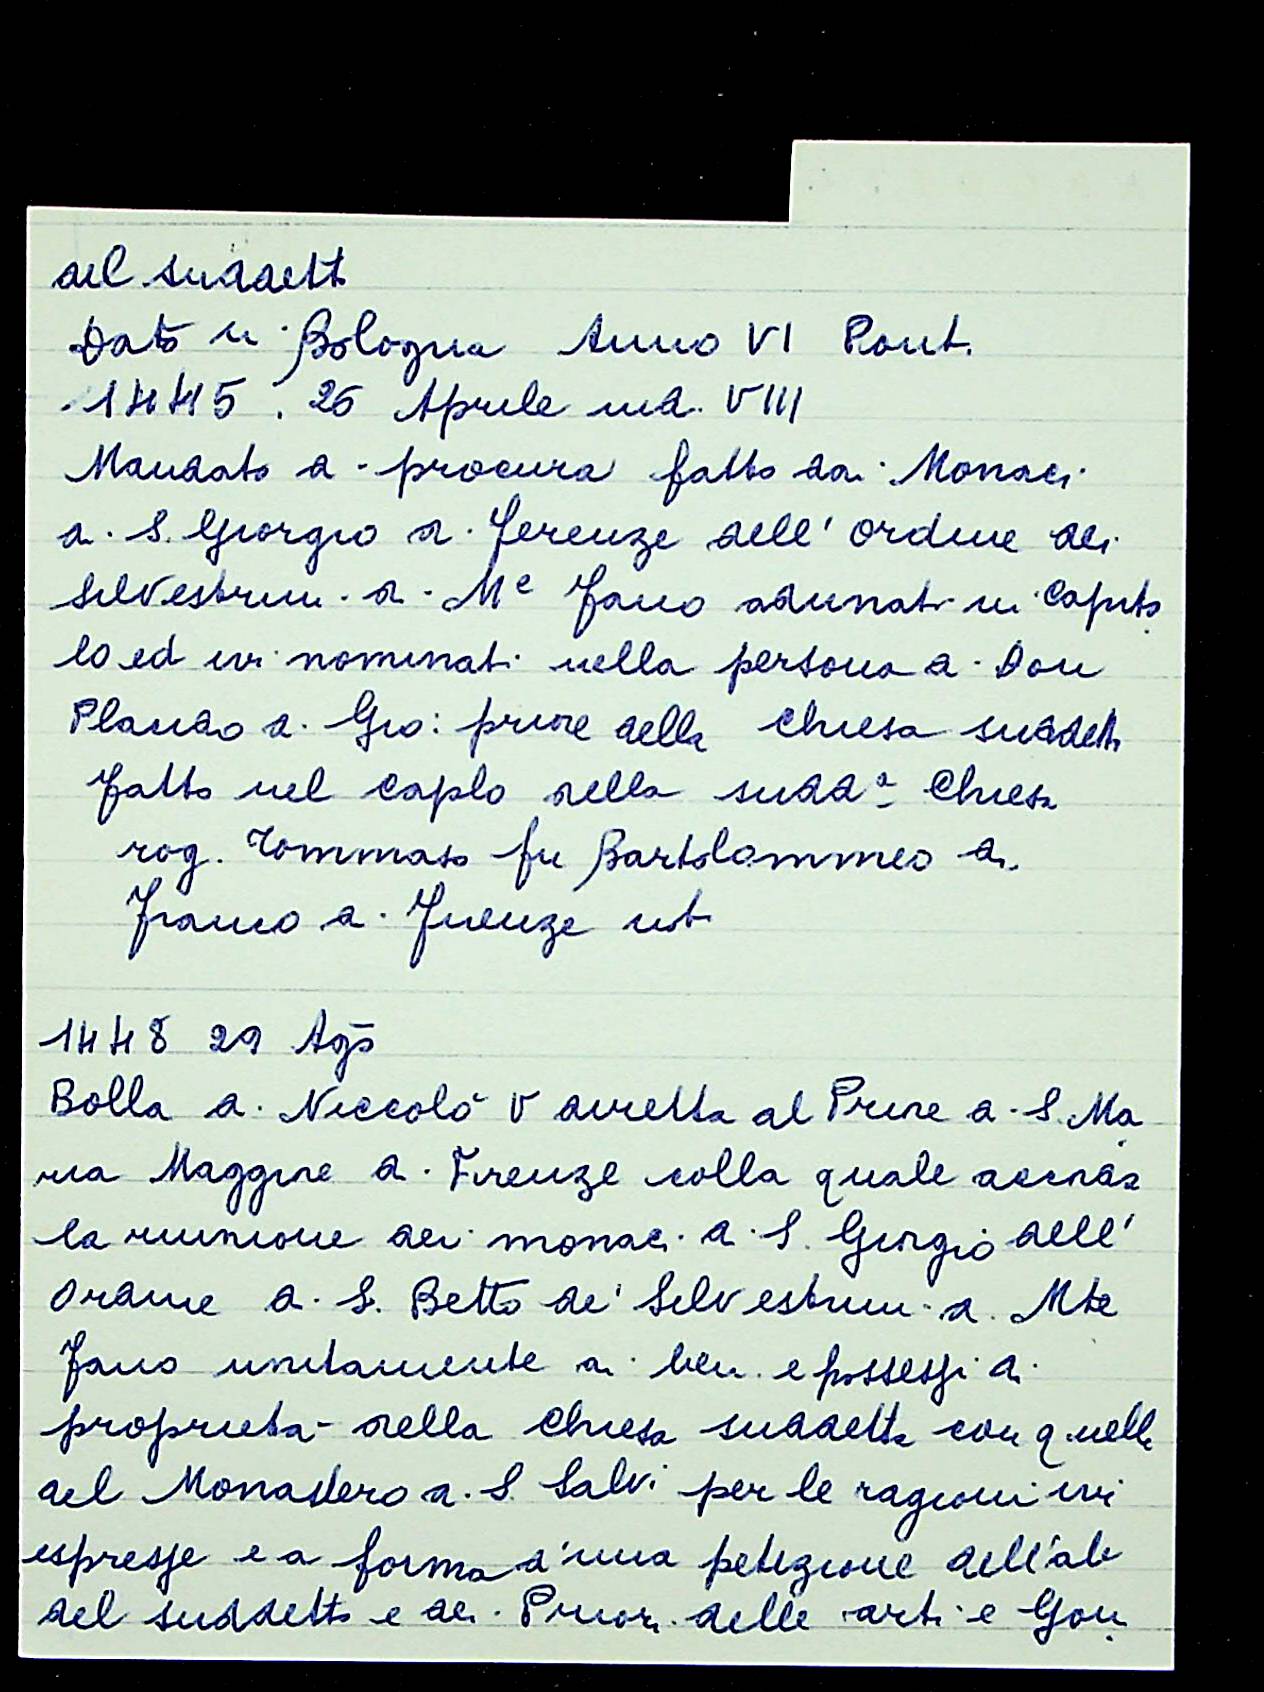 del suddetto
Dato in Bologna Anno VI Pont.
1445. 26 Aprile ind. VIII
Mandato di procura fatto dai Monaci
di S. Giorgio di Ferenze dell' ordine dei
Silvestrini di Me Fano adunati in Capito
lo ed ivi nominati nella persona di Don
Placido di Gio: priore della Chiesa suddetta
fatto nel caplo della suddª Chiesa
rog. Tommaso fu Bartolommeo di
Franco di Firenze not.
1448 29 Agō
Bolla di Niccolò V diretta al Priore di S. Ma
ria Maggiore di Firenze colla quale
la riunione dei monaci di S. Giorgio dell'
Ordine di S. Bettº de' Silvestrini di Mte
Fano unitamente ai beni e possessi di
proprietà della Chiesa suddetta con quelli
del Monastero di S. Salvi per le ragioni ivi
espresse e a forma d'una petizione dell'ab
del suddetto e dei Priori delle arti e Gon